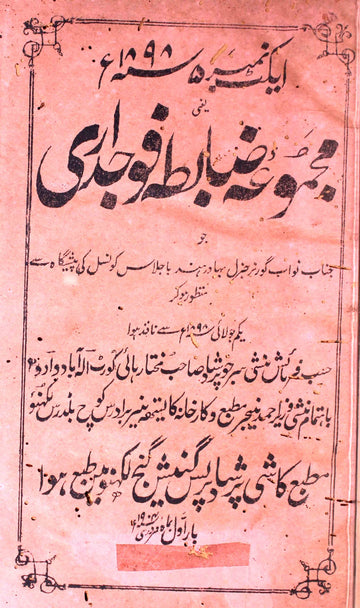 ایکٹ نمبر ۵ سنہ ۱۸۹۸ء
یعنی
مجموعہ ضابطہ فوجداری
جو
جناب نواب گورنر جنرل بہادر ہند باجلاس کونسل کی پیشگاہ سے
منظور ہو کر
یکم جولائی ۱۸۹۸ء سے نافذ ہوا
حسب فرمائش منشی سرجو پرشاد صاحب مختار ہائی کورٹ الہ آباد و اودھ
باہتمام منشی وزیر احمد منیجر مطبع و کارخانہ کالیتھ نیر برادرس کوچ بلڈرس لکھنؤ
مطبع کاشی پرشاد پریس گنیش گنج لکھنؤ میں طبع ہوا
بار اول ماہ فروری سنہ ۱۹۰۴ء